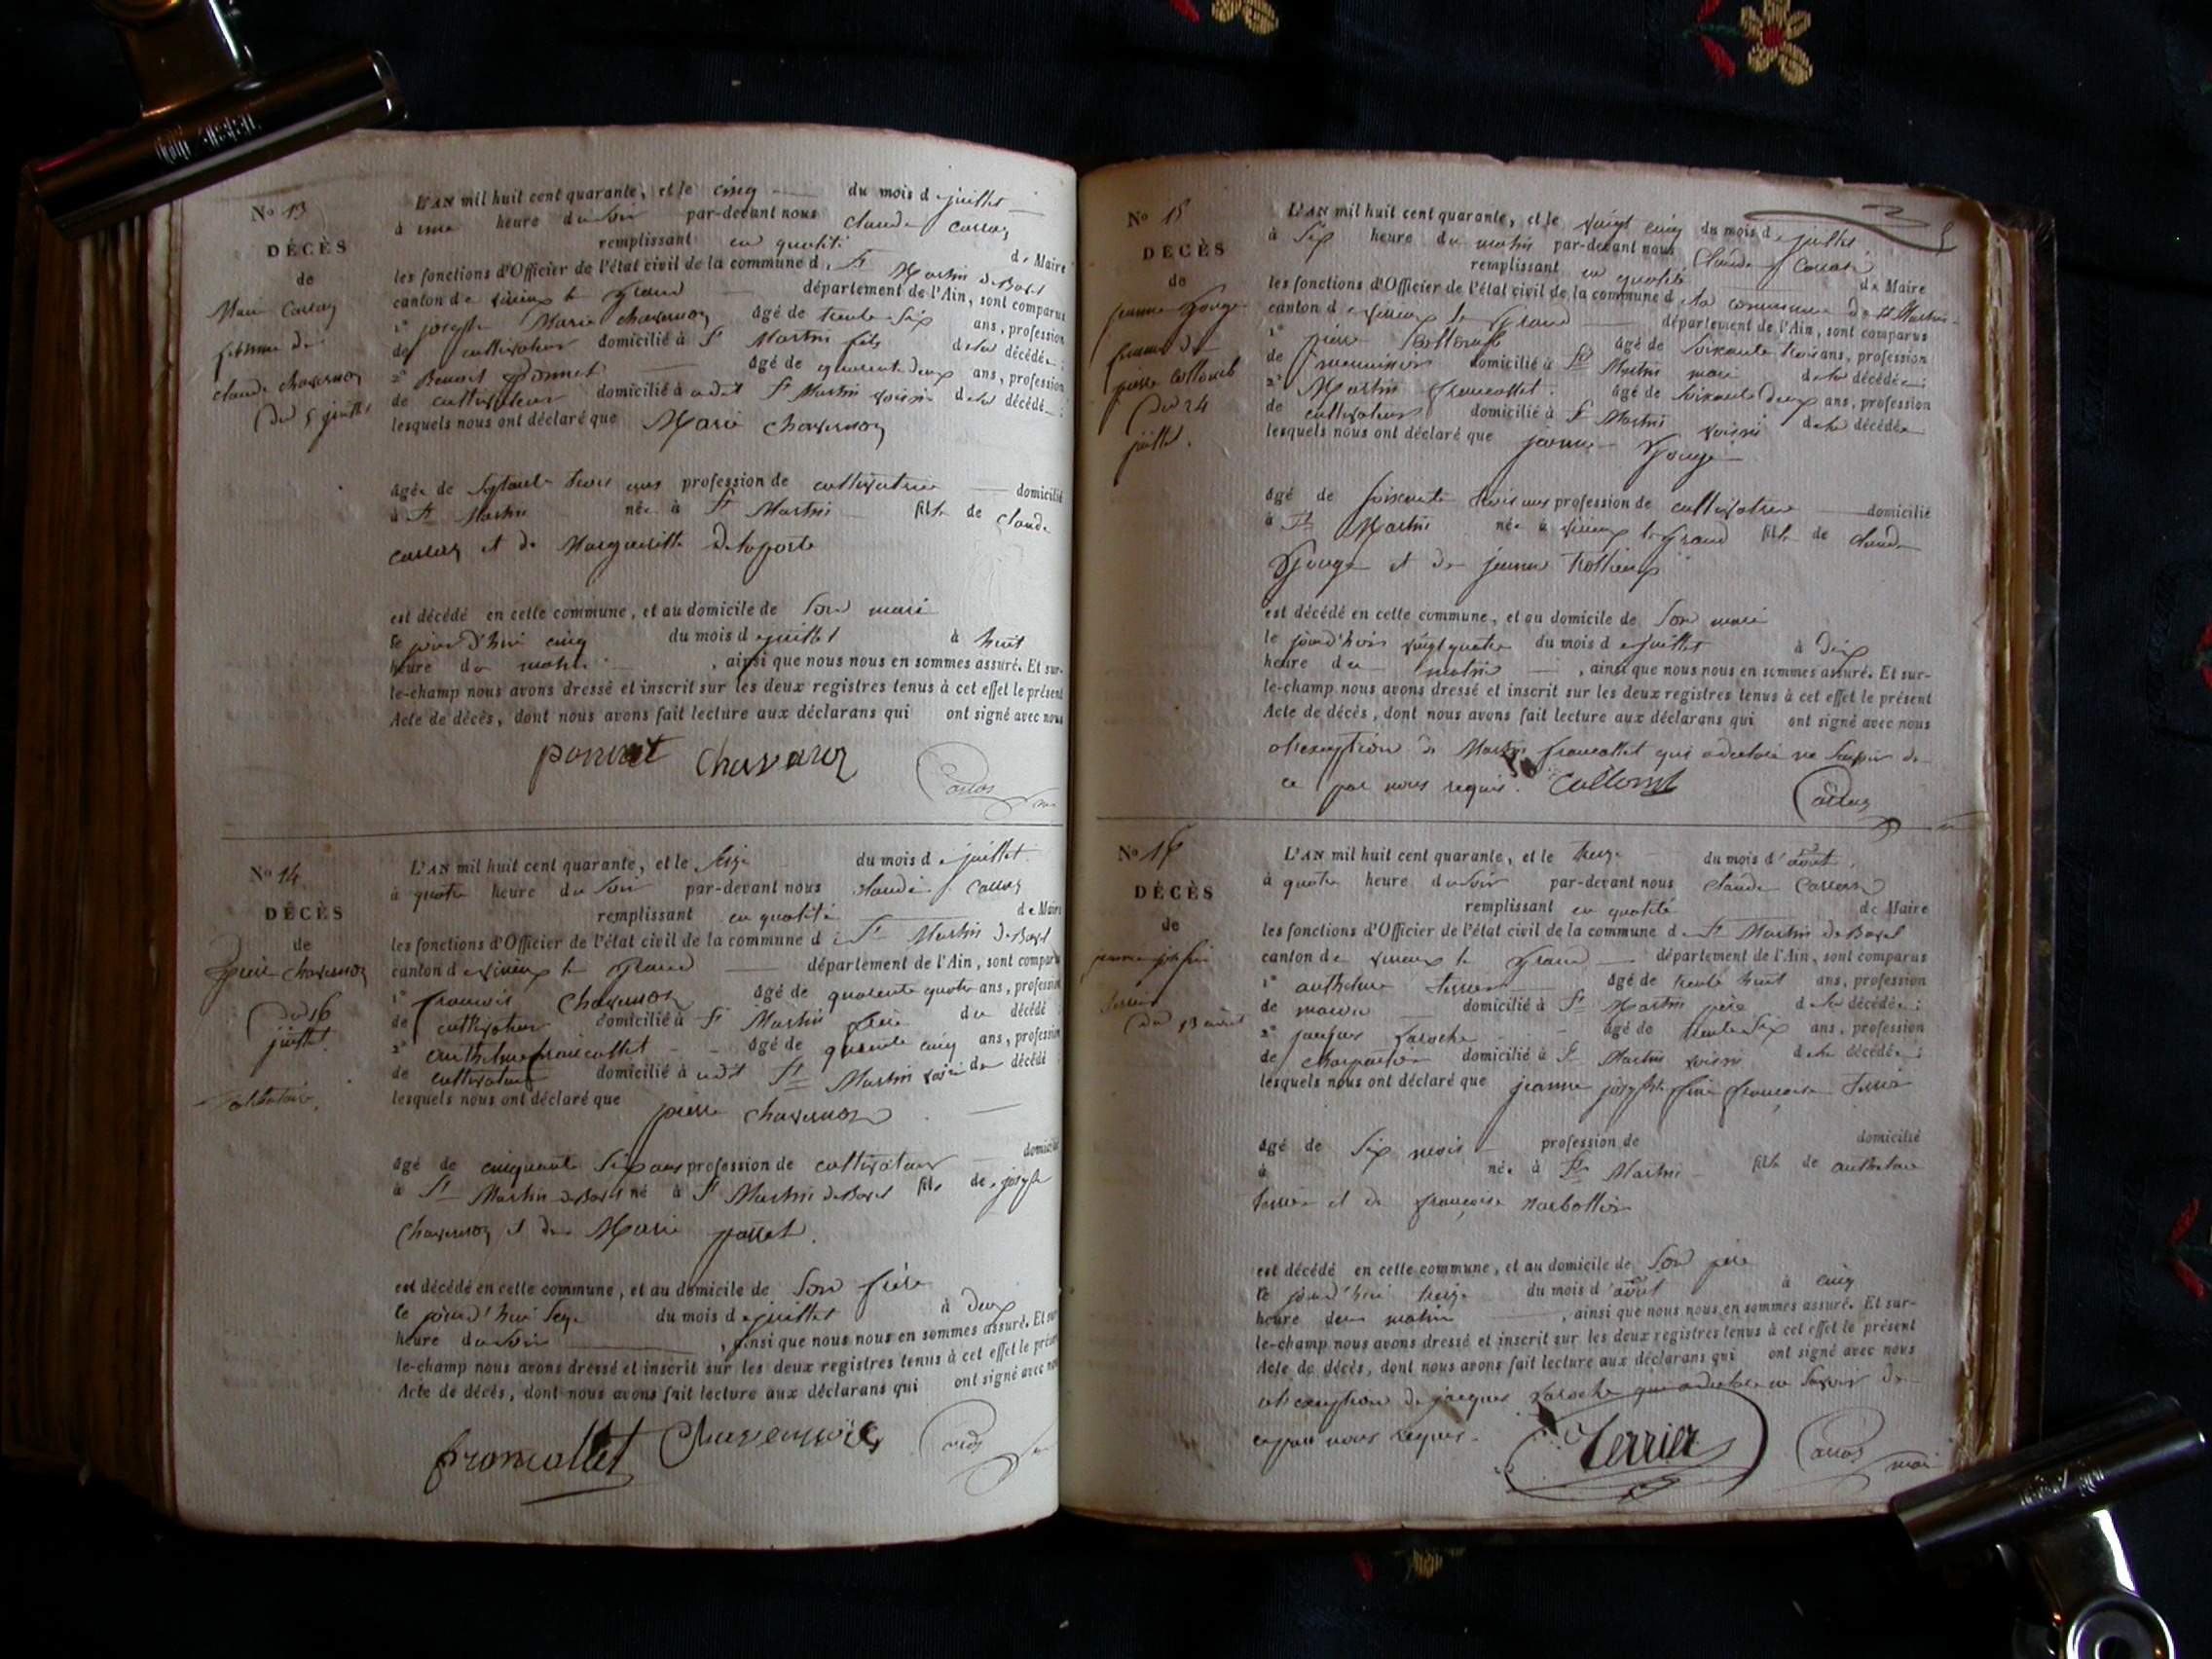 N° 13
DÉCÈS
de
Marie
femme de
claude chavernoz
du 5 juillet
L'AN mil huit cent quarante, et le cinq du mois de juillet
à une heure du soir par-devant nous claude
remplissant en qualité de Maire
les fonctions d'Officier de l'état civil de la commune de St Martin de Bavel
canton de virieux le grand département de l'Ain, sont comparus
1° joseph Marie chavernoz âgé de trente six ans, profession
de cultivateur domicilié à St Martin fils de la décédée ;
2° Benoit ponnet âgé de quarante deux ans, profession
de cultivateur domicilié à udit St Martin voisin de la décédée ;
lesquels nous ont déclaré que Marie chavernoz
âgée de septante trois ans profession de cultivatrice domicilié
à St Martin née à St Martin fille de claude
et de Margueritte Delaporte
est décédé en cette commune, et au domicile de son mari
le jourd'hui cinq du mois de juillet à huit
heure du matin, ainsi que nous nous en sommes assuré. Et sur-
le-champ nous avons dressé et inscrit sur les deux registres tenus à cet effet le présent
Acte de décès, dont nous avons fait lecture aux déclarans qui ont signé avec nous
N° 14
DÉCÈS
de
pierre chavernoz
du 16
juillet.
L'AN mil huit cent quarante, et le seize du mois de juillet
à quatre heure du soir par-devant nous claude
remplissant en qualité de Maire
les fonctions d'Officier de l'état civil de la commune de St Martin de Bavel
canton de virieux le grand département de l'Ain, sont comparus
1° francois chavernoz âgé de quarente quatre ans, profession
de cultivateur domicilié à St Martin frère du décédé
2° anthelme francollet âgé de quarente cinq ans, profession
de cultivateur domicilié à udit St Martin voisin du décédé
lesquels nous ont déclaré que pierre chavernoz
âgé de cinquante six ans profession de cultivateur domicilié
à St Martin de Bavel né à St Martin de Bavel fils de joseph
chavernoz et de Marie
est décédé en cette commune, et au domicile de son frère
le jourd'hui seize du mois de juillet à deux
heure du soir, ainsi que nous nous en sommes assuré. Et sur
le-champ nous avons dressé et inscrit sur les deux registres tenus à cet effet le présent
Acte de décès, dont nous avons fait lecture aux déclarans qui ont signé avec nous
francollet
N° 15
DÉCÈS
de
jeanne gouge
femme de
pierre collomb
du 24
juillet.
L'AN mil huit cent quarante, et le vingt cinq du mois de juillet
à six heure du matin par-devant nous claude
remplissant en qualité de Maire
les fonctions d'Officier de l'état civil de la commune de la commune de St Martin
canton de virieux le grand département de l'Ain, sont comparus
1° pierre collomb âgé de soixante trois ans, profession
de menuisier domicilié à St Martin mari de la décédée ;
2° Martin francollet. âgé de soixante deux ans, profession
de cultivateur domicilié à St Martin voisin de la décédée
lesquels nous ont déclaré que jeanne gouge
âgé de soixante trois ans profession de cultivatrice domicilié
à St Martin née à virieux le grand fille de claude
gouge et de jeanne
est décédé en cette commune, et au domicile de son mari
le jourd'hui vingt quatre du mois de juillet à dix
heure du matin, ainsi que nous nous en sommes assuré. Et sur-
le-champ nous avons dressé et inscrit sur les deux registres tenus à cet effet le présent
Acte de décès, dont nous avons fait lecture aux déclarans qui ont signé avec nous
de Martin francollet qui a déclaré ne savoir de
ce par nous requis. Collomb
N° 16
DÉCÈS
de
du 13 août
L'AN mil huit cent quarante, et le treize du mois d'août
à quatre heure du soir par-devant nous claude
remplissant en qualité de Maire
les fonctions d'Officier de l'état civil de la commune de St Martin de Bavel
canton de virieux le grand département de l'Ain, sont comparus
1° anthelme terrier âgé de trente huit ans, profession
de domicilié à St Martin père de la décédée ;
2° jacques Laroche âgé de trente six ans, profession
de charpentier domicilié à St Martin voisin de la décédée ;
lesquels nous ont déclaré que jeanne françoise terrier
âgé de six mois profession de domicilié
à née à St Martin fille de anthelme
terrier et de françoise
est décédé en cette commune, et au domicile de son père
le jourd'hui treize du mois d'août à cinq
heure du matin, ainsi que nous nous en sommes assuré. Et sur-
le-champ nous avons dressé et inscrit sur les deux registres tenus à cet effet le présent
Acte de décès, dont nous avons fait lecture aux déclarans qui ont signé avec nous
de jacques Laroche qui a déclaré ne savoir de
ce par nous requis.
Terrier